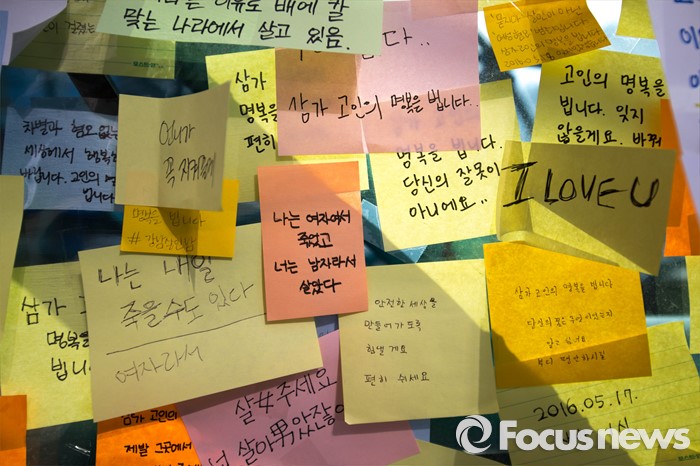 배에 칼
맞는 나라에서 살고 있음.
삼가 고인의 명복을 빕니다..
삼가
명복을
편히
고인의 명복을
빕니다. 잊지
않을게요. 바꿔
차별과 혐오 없는
세상에서 행복하
바랍니다. 고인의 명
빕니다
언니가
꼭 지켜줄게
명복을 빕니다.
당신의 잘못이
아니에요..
I LOVE U
명복을 빕니다
나는 여자여서
죽었고
너는 남자라서
살았다
나는 내일
죽을 수도 있다
여자라서
삼가
명복을
빕니
안전한 세상을
만들어 가도록
힘낼게요
편히 쉬세요
삼가 고인의 명복을 빕니다
살女주세요
살아男았잖아
삼가 고인의
제발 그곳에서
2016.05.17.
Focusnews